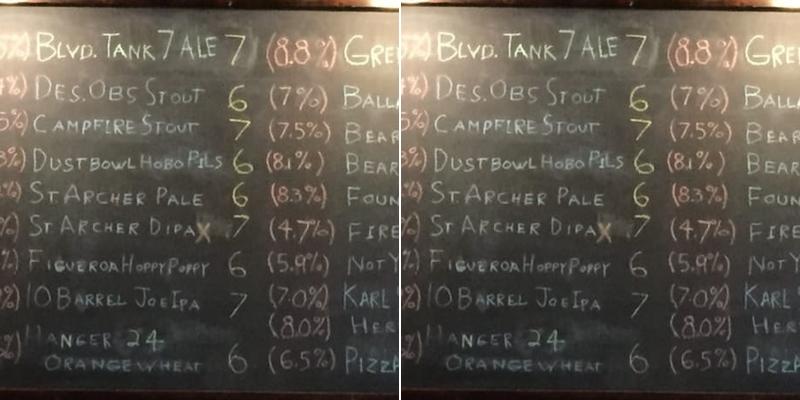 %) BLVD. TANK 7 ALE 7 (8.8%) GRE
%) DES. OBS STOUT 6 (7%) BALLA
5%) CAMPFIRE STOUT 7 (7.5%) BEAR
%) DUSTBOWL HOBO PILS 6 (8.1%) BEAR
%) ST. ARCHER PALE 6 (8.3%) FOUN
%) ST ARCHER DIPA X 7 (4.7%) FIRE
%) FIGUEROA HOPPY POPPY 6 (5.9%) NOT Y
%) 10 BARREL JOE IPA 7 (7.0%) KARL
(8.0%) HER
HANGER 24
%) ORANGE WHEAT 6 (6.5%) PIZZA
%) BLVD. TANK 7 ALE 7 (8.8%) GRE
%) DES. OBS STOUT 6 (7%) BALLA
5%) CAMPFIRE STOUT 7 (7.5%) BEAR
%) DUSTBOWL HOBO PILS 6 (8.1%) BEAR
%) ST. ARCHER PALE 6 (8.3%) FOUN
%) ST ARCHER DIPA X 7 (4.7%) FIRE
%) FIGUEROA HOPPY POPPY 6 (5.9%) NOT Y
%) 10 BARREL JOE IPA 7 (7.0%) KARL
(8.0%) HER
HANGER 24
%) ORANGE WHEAT 6 (6.5%) PIZZA